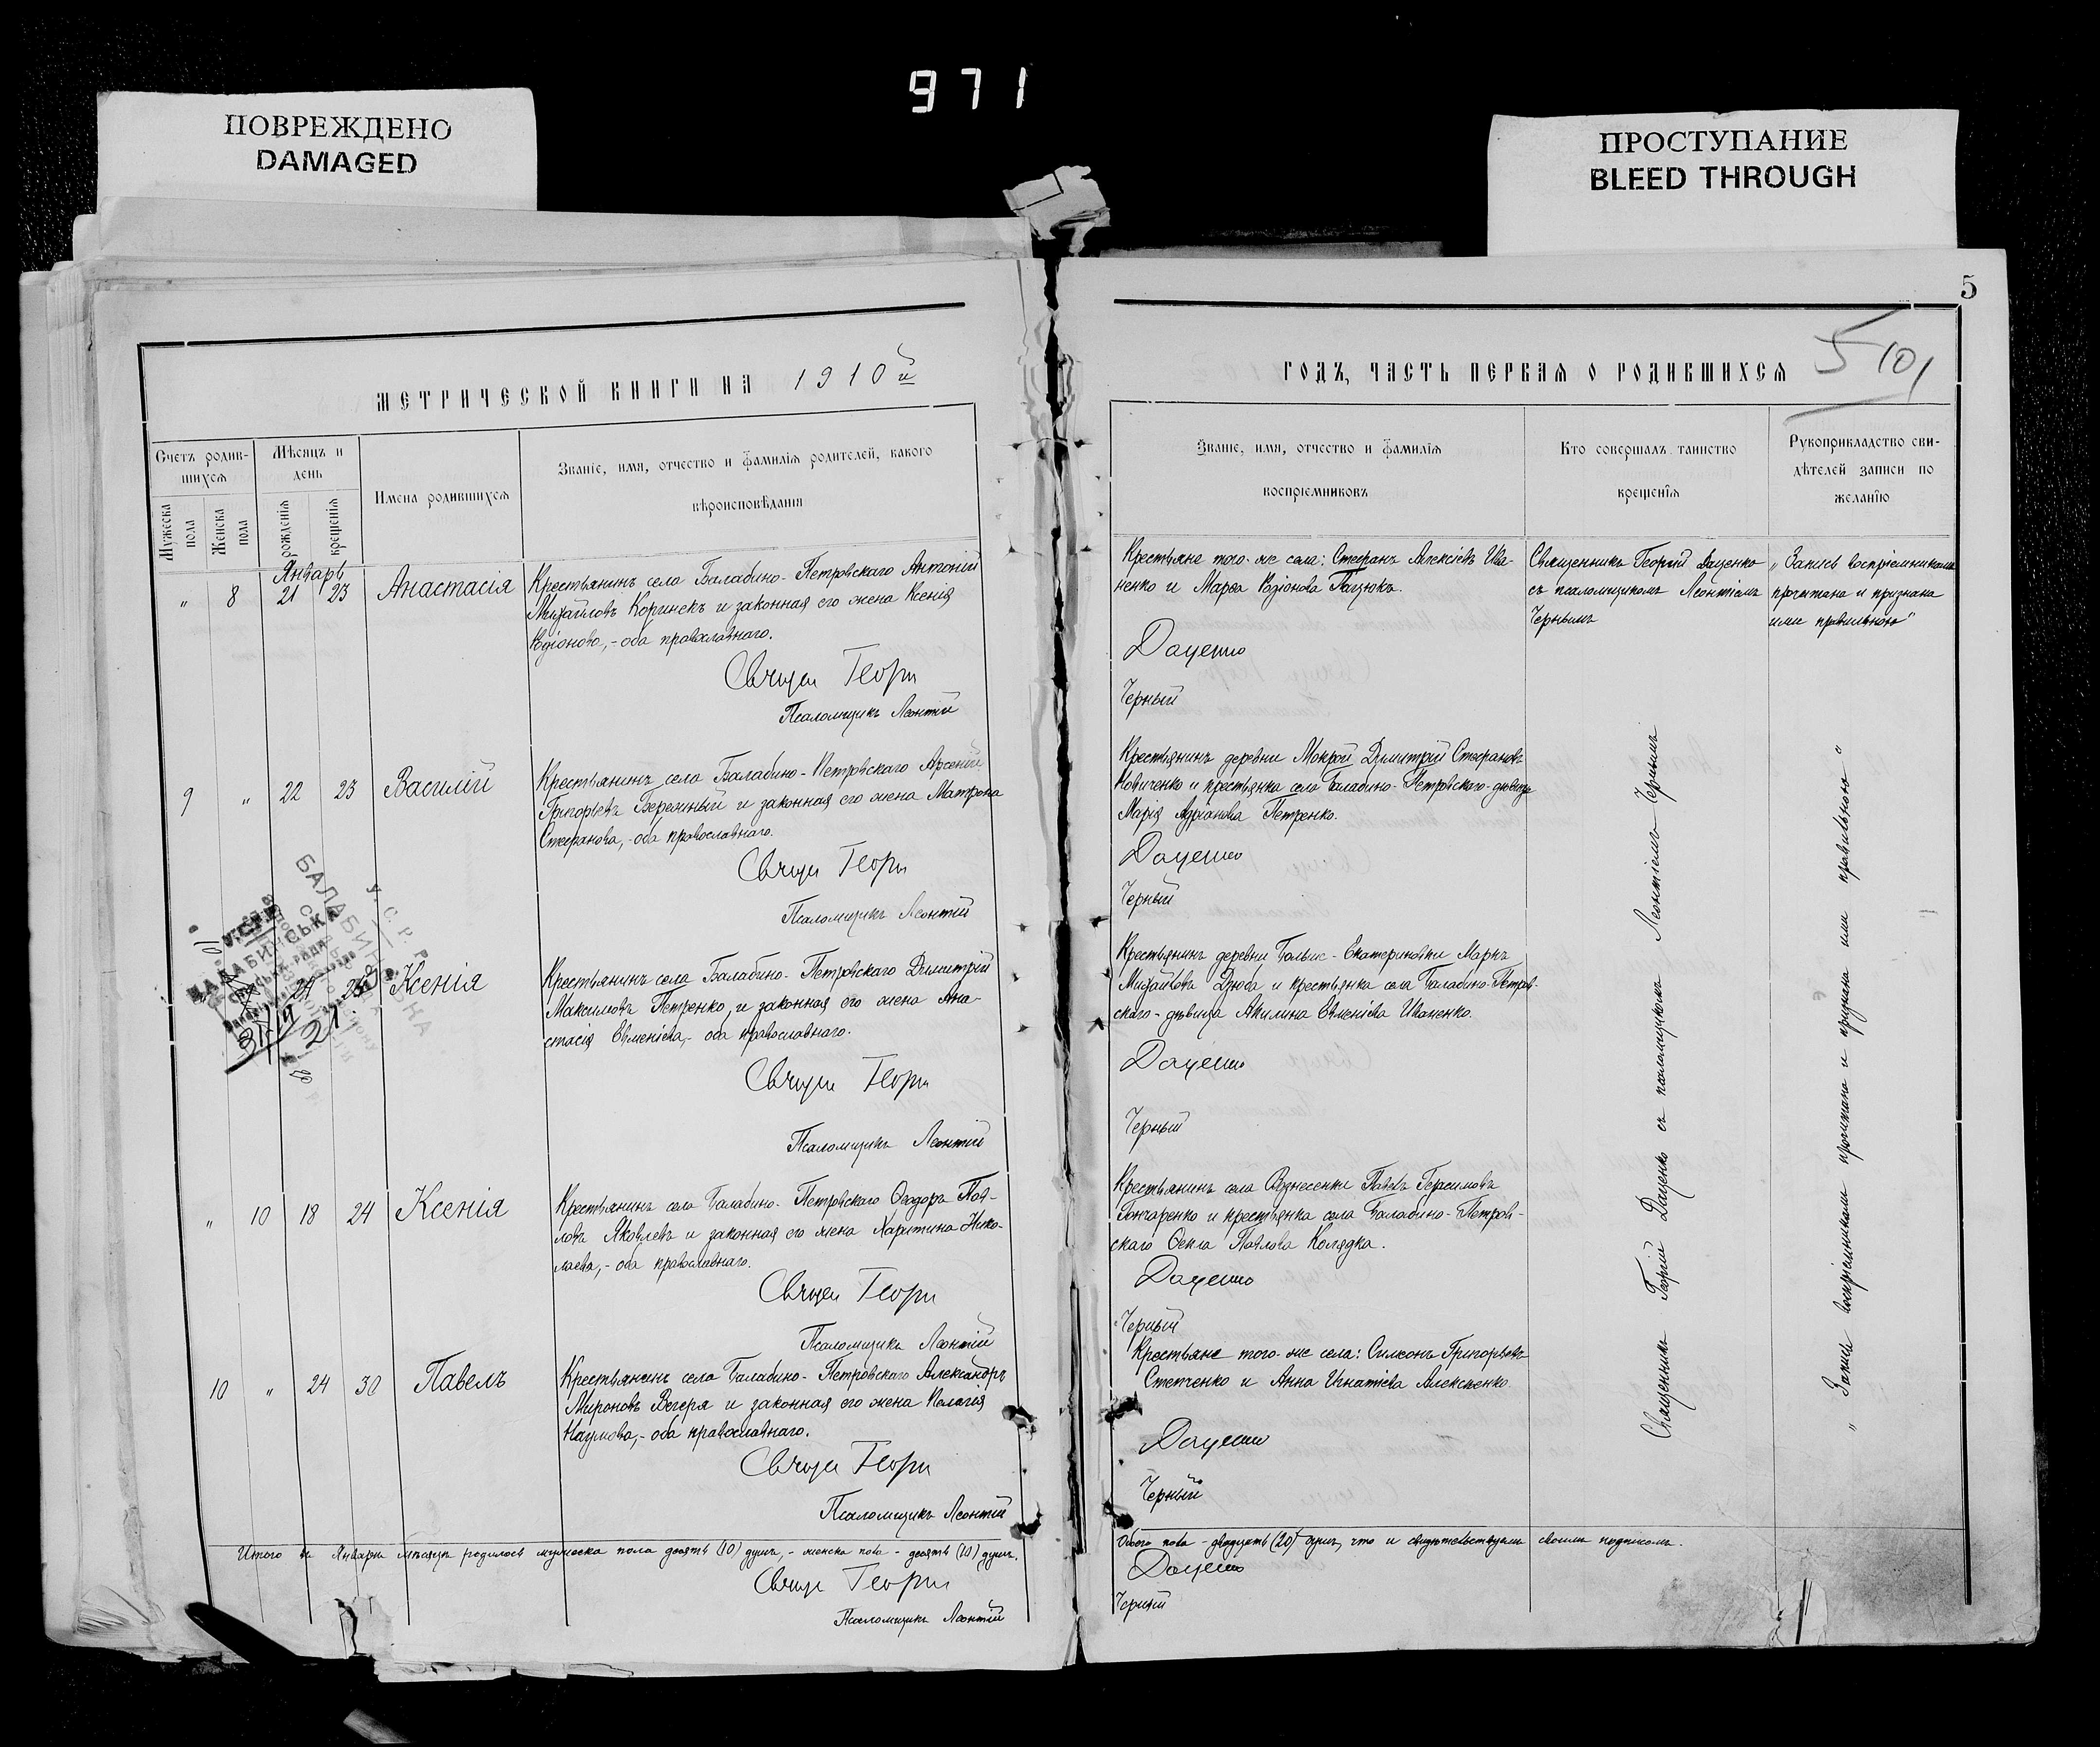 971
ПОВРЕЖДЕНО
DAMAGED
ПРОСТУПАНИЕ
BLEED THROUGH
МЕТРИЧЕСКОЙ КНИГИ НА 1910й
Счетъ родив-
шихся
Мѣсяцъ и
день
Имена родившихся
Званіе, имя, отчество и фамилія родителей, какого
вѣроисповѣданія
Мужеска
пола
Женска
пола
рожденія
крещенія
Январь
„ 8 21 23 Анастасія
Крестьянинъ села Балабино-Петровскаго Антоній
Михайловъ Коринекъ и законная его жена Ксенія
Родіонова,- оба православнаго.
Священ Георги
Псаломщикъ Леонтій
9 „ 22 23 Василій
Крестьянинъ села Балабино-Петровскаго Арсеній
Григорьевъ Бережный и законная его жена Матрона
Стефанова,- оба православнаго.
Священ Георги
Псаломщикъ Леонтій
БАЛАБИНСЬКА
24 Ксенія
Крестьянинъ села Балабино-Петровскаго Димитрій
Максимовъ Петренко и законная его жена Ана-
стасія Евменіева,- оба православнаго.
Священ Георги
Псаломщикъ Леонтій
„ 10 18 24 Ксенія
Крестьянинъ села Балабино-Петровскаго Ѳеодоръ Пав-
ловъ Яковлевъ и законная его жена Харитина Нико-
лаева,- оба православнаго.
Священ Георги
Псаломщикъ Леонтій
10 „ 24 30 Павелъ
Крестьянинъ села Балабино-Петровскаго Александръ
Мироновъ Вегеря и законная его жена Пелагія
Наумова,- оба православнаго.
Священ Георги
Псаломщикъ Леонтій
Итого въ Январѣ мѣсяцѣ родилось мужеска пола десять (10) душъ,- женска пола - десять (10) душъ,
Свящ Георги
Псаломщикъ Леонтій
5
ГОДЪ, ЧАСТЬ ПЕРВАЯ О РОДИВШИХСЯ
5 101
Званіе, имя, отчество и фамилія
воспріемниковъ
Кто совершалъ таинство
крещенія
Рукоприкладство сви-
дѣтелей записи по
желанію
Крестьяне того-же села: Стефанъ Алексіевъ Ива-
ненко и Марѳа Родіонова Пацюкъ.
Даценко
Черный
Священникъ Георгій Даценко
съ псаломщикомъ Леонтіемъ
Чернымъ
„Запись воспріемниками
прочитана и признана
ими правильною“
Крестьянинъ деревни Мокрой Димитрій Стефановъ
Новиченко и крестьянка села Балабино-Петровскаго-дѣвица
Марія Адріанова Петренко.
Даценко
Черный
Крестьянинъ деревни Больш-Екатериновки Маркъ
Михайловъ Дзюба и крестьянка села Балабино-Петров-
скаго-дѣвица Акилина Евменіева Иваненко.
Даценко
Черный
Крестьянинъ села Вознесенки Павелъ Герасимовъ
Гончаренко и крестьянка села Балабино-Петров-
скаго Ѳекла Павлова Колядка.
Даценко
Черный
Крестьяне того-же села: Симеонъ Григорьевъ
Степченко и Анна Игнатіева Алексѣенко.
Даценко
Черный
Священникъ Георгій Даценко съ псаломщикомъ Леонтіемъ Чернымъ
„Запись воспріемниками прочитана и признана ими правильною“
Обоего пола - двадцать (20) душъ, что и свидѣтельствуемъ своимъ подписомъ.
Даценко
Черный